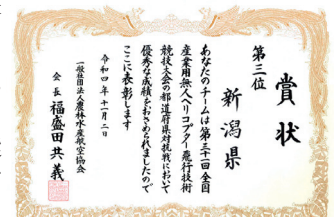 賞状
第三位
新潟県
あなたのチームは第三十一回全国
産業用無人ヘリコプター飛行技術
競技大会の都道府県対抗戦において
優秀な成績をおさめられましたので
ここに表彰します
令和四年十一月二日
一般社団法人農林水産航空協会
会長 福盛田共義